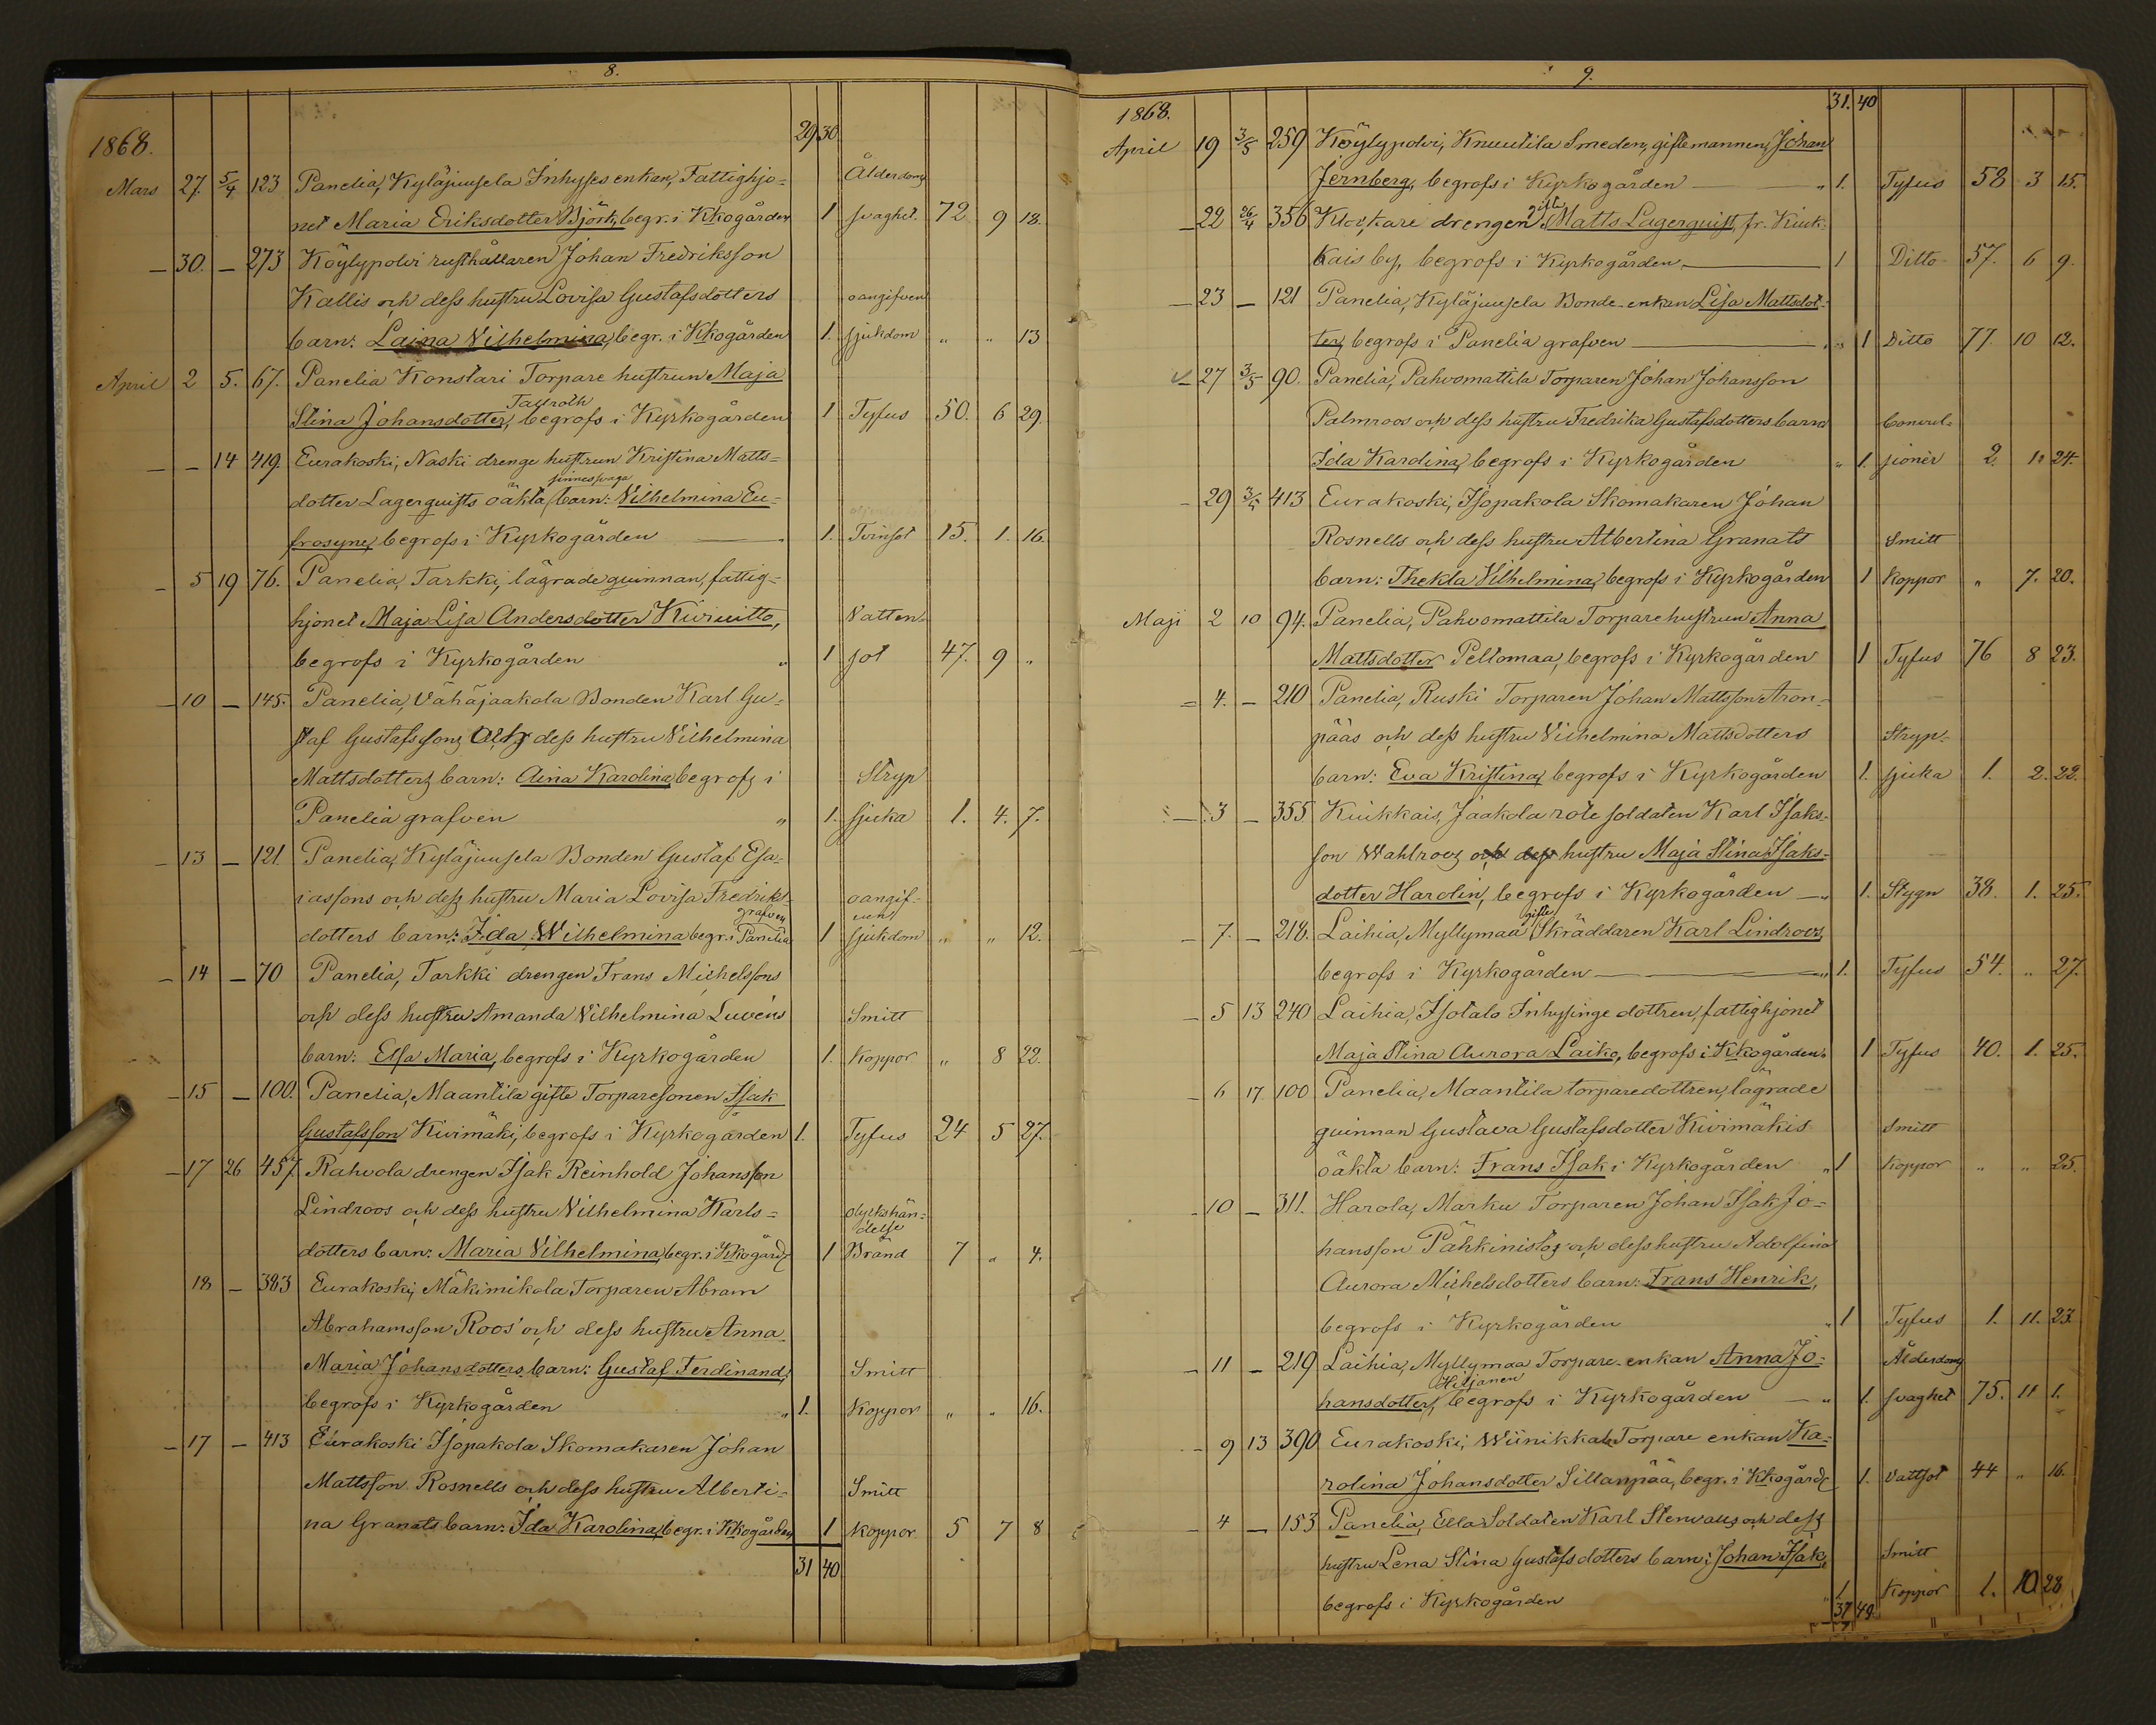 8.
29 30.
1868.
Mars 27. 5/4 123 Panelia, Kyläjuusela Inhyses enkan, Fattighjo= Ålderdoms
net Maria Eriksdotter Björk, begr. i Kkogården 1 svaghet. 72 9 18.
— 30. — 273 Köylypolvi rusthållaren Johan Fredriksson
Kallis och dess hustru Lovisa Gustafsdotters oangifven
barn: Laina Vilhelmina, begr. i Kkogården 1. sjukdom " " 13
April 2 5. 67. Panelia Konstari Torpare hustrun Maja
Tallroth
Stina Johansdotter, begrofs i Kyrkogården 1 Tyfus 50. 6 29.
— — 14 419. Eurakoski, Naski drenge hustrun Kristina Matts=
sinnessvaga
dotter Lagerquists oäkta barn: Vilhelmina Eu=
frosyne, begrofs i Kyrkogården 1. Tvinsot 15. 1. 16.
— 5 19 76. Panelia, Tarkki, lägrade quinnan, fattig=
hjonet Maja Lisa Andersdotter Kiviuitto, Vatten=
begrofs i Kyrkogården " 1 sot 47. 9 "
— 10 — 145. Panelia, Vähäjaakola Bonden Karl Gu=
staf Gustafssons och dess hustru Vilhelmina
Mattsdotters barn: Aina Karolina, begrofs i Stryp
Panelia grafven " 1. sjuka 1. 4. 7.
— 13 — 121. Panelia, Kyläjuusela Bonden Gustaf Esa=
iassons och dess hustru Maria Lovisa Fredriks= oangif=
grafven
dotters barn: Ida Wilhelmina begr. i Panelia 1 sjukdom " " 12.
— 14 — 70 Panelia, Tarkki drengen Frans Michelssons
och dess hustru Amanda Vilhelmina Luvéns Smitt
barn: Elsa Maria, begrofs i Kyrkogården 1. Koppor " 8 22.
— 15 — 100. Panelia, Maantila gifte Torparesonen Isak
Gustafsson Kivimäki, begrofs i Kyrkogården 1. Tyfus 24 5 27.
— 17 26 457. Rahvola drengen Isak Reinhold Johansson
Lindroos och dess hustru Vilhelmina Karls= olyckshän=
delse
dotters barn: Maria Vilhelmina, begr. i Kkogård. 1 Brand 7 " 4.
18 — 383 Eurakoski, Mäkimikola Torparen Abram
Abrahamsson Roos' och dess hustru Anna
Maria Johansdotters barn: Gustaf Ferdinand, Smitt
begrofs i Kyrkogården " 1. Koppor " " 16.
— 17 — 413 Eurakoski Isopakola Skomakaren Johan
Mattsson Rosnells och dess hustru Alberti= Smitt
na Granats barn: Ida Karolina, begr. i Kkogården 1 koppor 5 7 8
31 40
9.
31. 40
1868.
April 19 3/5 259 Köylypolvi, Knuutila Smeden, giftemannen, Johan
Jernberg, begrofs i Kyrkogården — " 1. Tyfus 58 3 15.
gifte
— 22 26/4 356 Klockare drengen Matts Lagerquist, fr. Kiuk=
kais by, begrofs i Kyrkogården — 1 Ditto 57. 6 9.
— 23 — 121 Panelia, Kyläjuusela Bonde-enkan Lisa Mattsdot=
ter, begrofs i Panelia grafven — " 1 Ditto 77. 10 12.
— 27 3/5 90. Panelia, Pahvomattila Torparen Johan Johansson
Palmroos och dess hustru Fredrika Gustafsdotters barn Convul=
Ida Karolina, begrofs i Kyrkogården " 1. sioner 2. 11 24.
— 29 3/5 413 Eurakoski, Isopakola Skomakaren Johan
Rosnells och dess hustru Albertina Granats Smitt
barn: Thekla Vilhelmina, begrofs i Kyrkogården 1 Koppor " 7. 20.
Maji 2 10 94. Panelia, Pahvomattila Torparehustrun Anna
Mattsdotter Peltomaa, begrofs i Kyrkogården 1 Tyfus 76 8 23.
— 4. — 210 Panelia, Ruski Torparen Johan Mattsson Aron=
pääs och dess hustru Vilhelmina Mattsdotters Stryp=
barn: Eva Kristina, begrofs i Kyrkogården 1. sjuka 1. 2. 22.
— 3 — 355 Kiukkais, Jaakola rote soldaten Karl Isaks=
son Wahlroos och dess hustru Maja Stina Isaks=
dotter Harolin, begrofs i Kyrkogården — " 1. Stygn 38. 1. 25.
gifte
— 7. — 218. Laihia, Myllymaa Skräddaren Karl Lindroos,
begrofs i Kyrkogården — " 1. Tyfus 54. " 27.
— 5 13 240 Laihia, Isotalo Inhysinge dottren, fattighjonet
Maja Stina Aurora Laiko, begrofs i Kkogården 1 Tyfus 40. 1. 25.
— 6 17. 100 Panelia, Maantila torparedottren, lägrade
quinnan Gustava Gustafsdotter Kivimäkis Smitt
oäkta barn: Frans Isak i Kyrkogården " 1 Koppor " " 25.
— 10 — 311. Harola, Marku Torparen Johan Isak Jo=
hansson Pähkinistös och dess hustru Adolfina
Aurora Michelsdotters barn: Frans Henrik,
begrofs i Kyrkogården " 1 Tyfus 1. 11. 23.
— 11 — 219 Laihia, Myllymaa Torpare-enkan Anna Jo= Ålderdoms
Hiljanen
hansdotter, begrofs i Kyrkogården — " 1. svaghet 75. 11 1.
— 9 13 390 Eurakoski, Wiinikkala Torpare enkan Ka=
rolina Johansdotter Sillanpää, begr. i Kkogård. 1. Vattsot 44 " 16.
— 4 — 153 Panelia, Ella Soldaten Karl Stenvalls och dess
hustru Lena Stina Gustafsdotters barn: Johan Isak, Smitt
begrofs i Kyrkogården " 1. Koppor 1. 10 28
37 49.